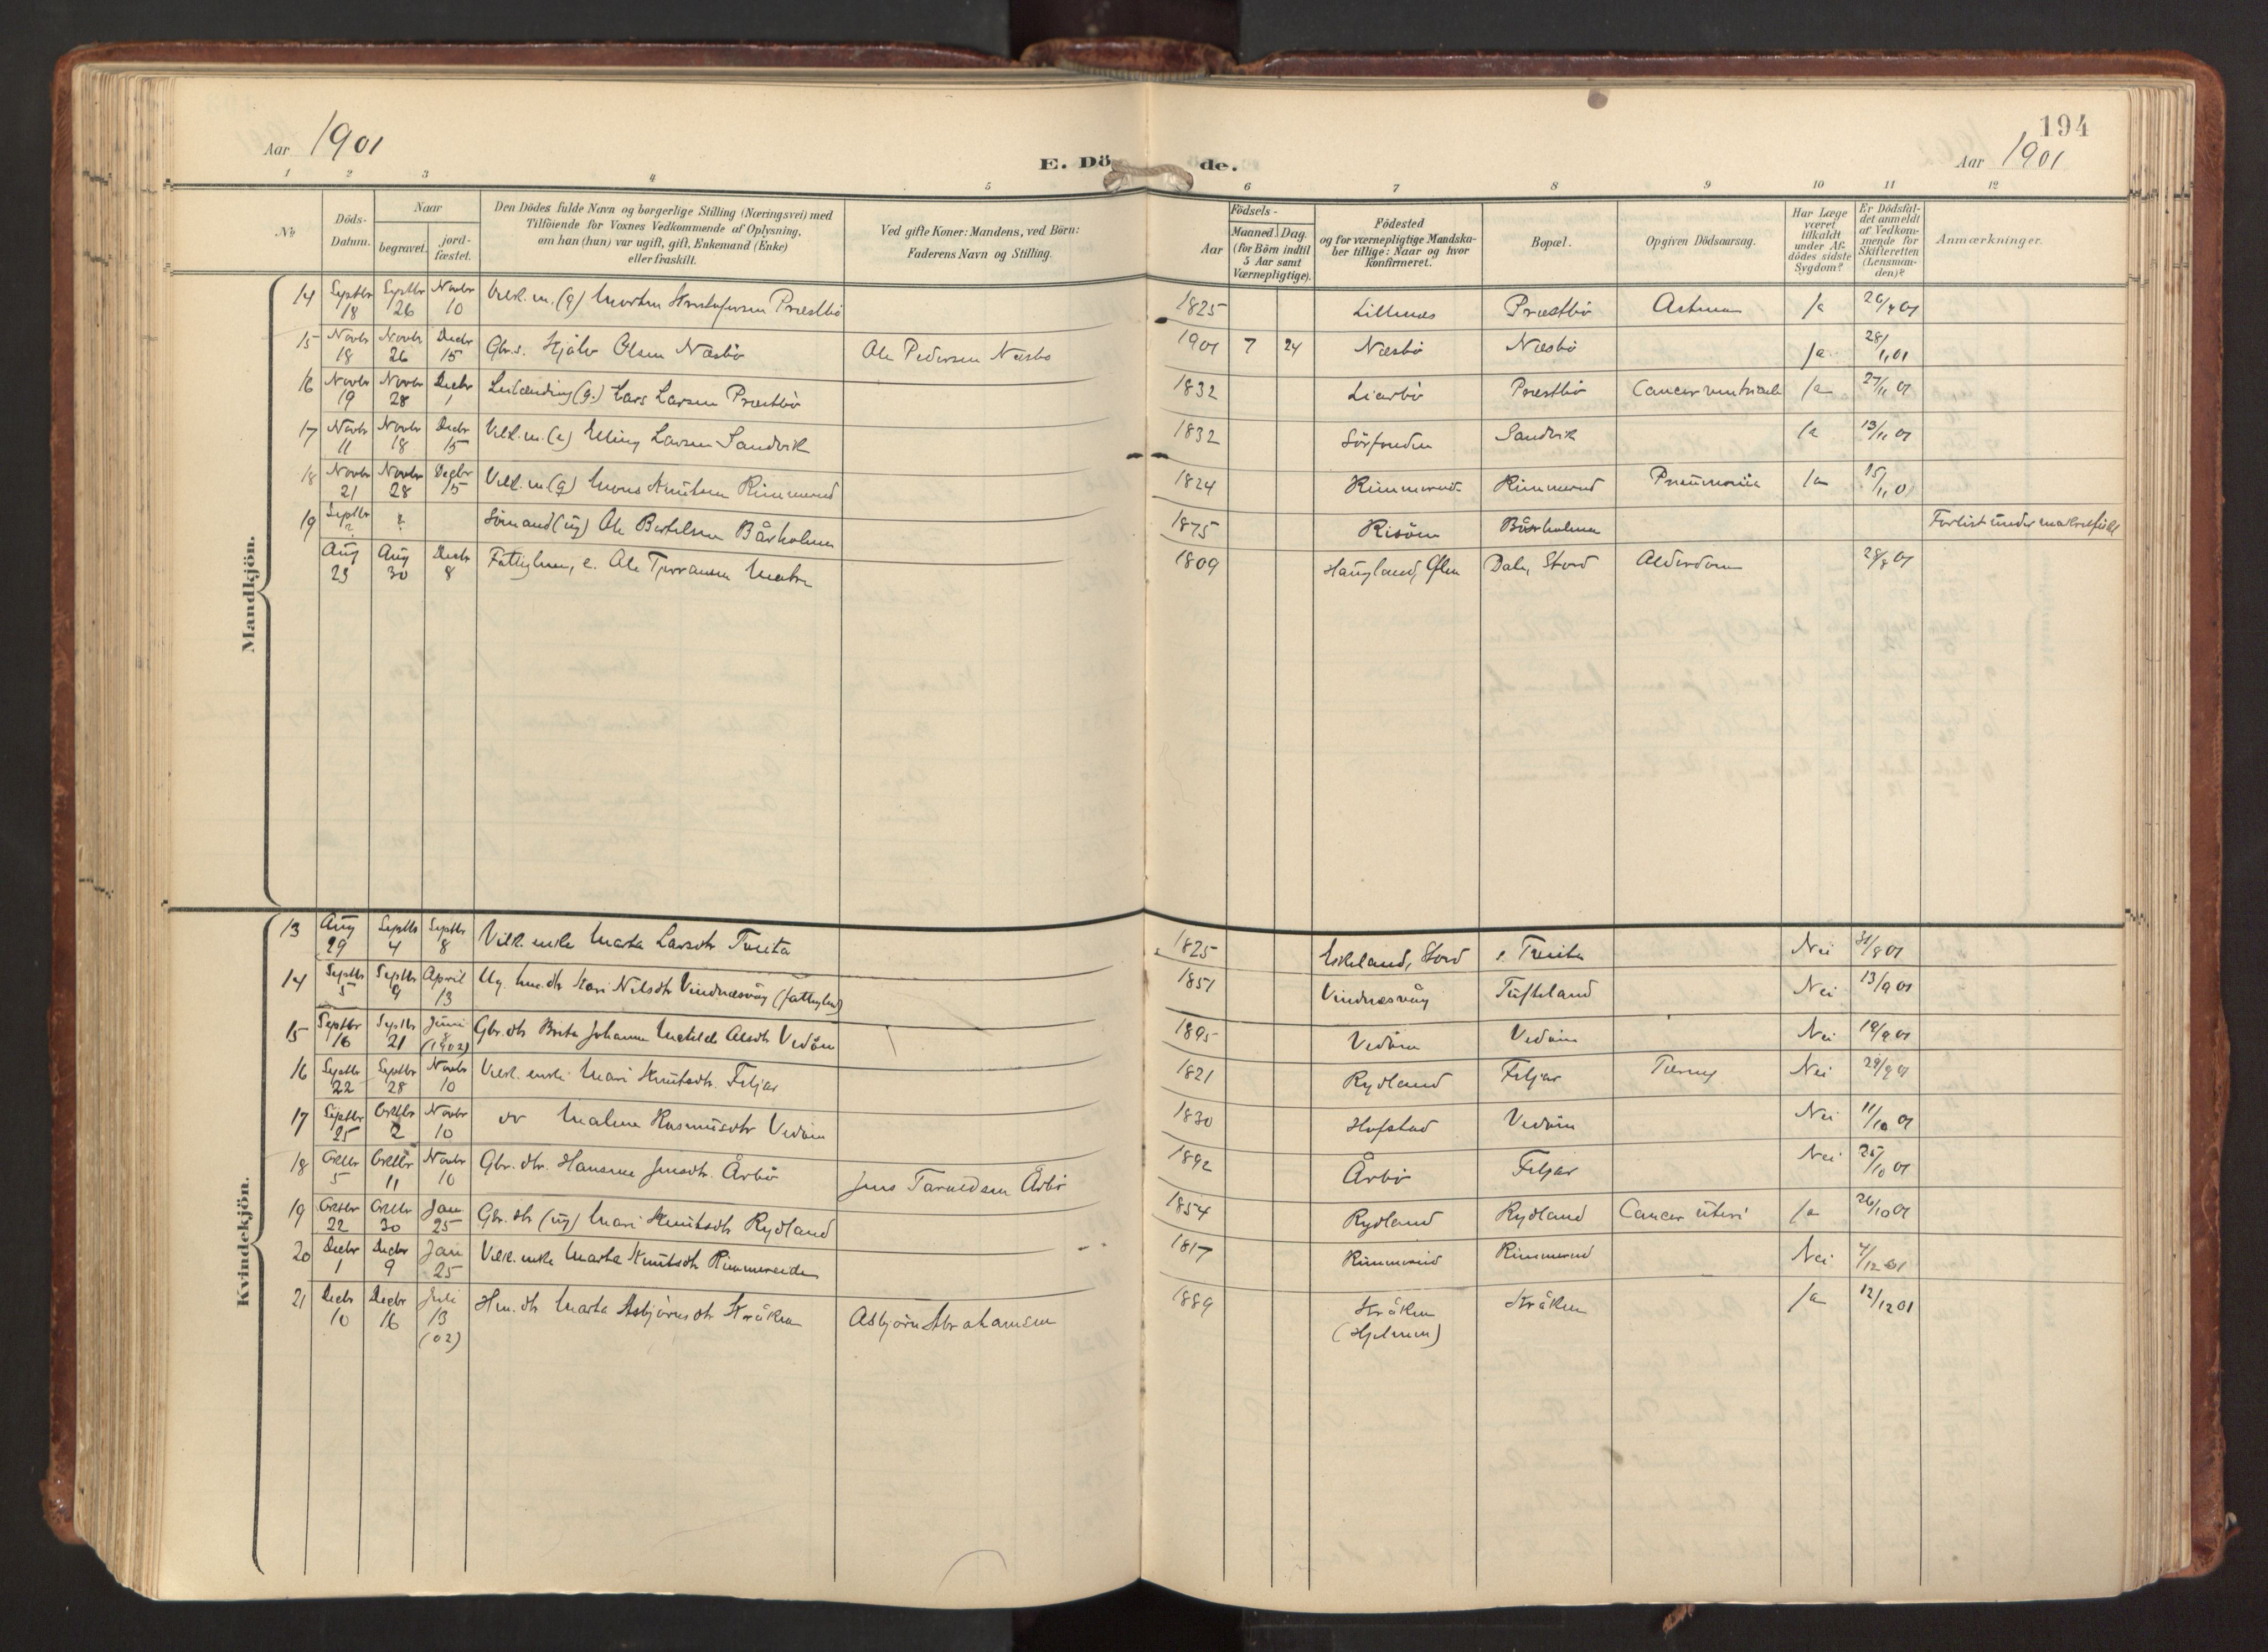 194
Aar 1901
E. Döde.
Aar 1901
1 2 3 4 5 6 7 8 9 10 11 12
No
Döds-Datum.
Naar
begravet.
jord-fæstet.
Den Dödes fulde Navn og borgerlige Stilling (Næringsvei) med
Tilföiende for Voxnes Vedkommende af Oplysning,
om han (hun) var ugift, gift, Enkemand (Enke)
eller fraskilt.
Ved gifte Koner: Mandens, ved Börn:
Faderens Navn og Stilling.
Födsels-
Aar
Maaned. Dag.
(for Börn indtil
5 Aar samt
Værnepligtige).
Födested
og for værnepligtige Mandska-
ber tillige: Naar og hvor
konfirmeret.
Bopæl.
Opgiven Dödsaarsag.
Har Læge
været
tilkaldt
under Af-
dödes sidste
Sygdom?
Er Dödsfal-
det anmeldt
af Vedkom-
mende for
Skifteretten
(Lensman-
den)?
Anmærkninger.
Mandkjön.
14 Septbr 18 Septbr 26 Novbr 10 Vilk. m. (g) Morten Præstbö 1825 Lillenæs Præstbö Astma Ja
15 Novbr 18 Novbr 26 Decbr 15 Gbr.s. Hjålv Olsen Næsbö Ole Pedersen Næsbö 1901 7 24 Næsbö Næsbö Ja 28/11 01
16 Novbr 19 Novbr 28 Decbr 1 (g.) Lars Larsen Præstbö 1832 Liarbö Præstbö Cancer ventriculi Ja 27/11 01
17 Novbr 11 Novbr 18 Decbr 15 Vilk. m. (e) Elling Larsen Sandvik 1832 Sandvik Ja 13/11 01
18 Novbr 21 Novbr 28 Decbr 15 Vilk. m. (g) Mons Knutsen Rimmereid 1824 Rimmereid Rimmereid Pneumonia Ja
19 Septbr ? ? Sömand (ug) Ole Bertelsen Bårholmen 1875 Risöen Bårholmen Forlist under makrelfiske
Aug 23 Aug 30 Decbr 8 Fattiglem, e. Ole Matre 1809 Haugland, Ølen Dale, Stord Alderdom 28/8 01
Kvindekjön.
13 Aug 29 Septbr 4 Septbr 8 Vilk. enke Marta Larsdtr Tveita 1825 Eskeland, Stord Tveita Nei 31/8 01
14 Septbr 5 Septbr 9 April 13 Ug. hm. dtr Kari Nilsdtr Vindnæsvåg (fattiglem) 1851 Vindnæsvåg Tufteland Nei 13/9 01
15 Septbr 16 Septbr 21 Juni 8 (1902) Gbr. dtr Brita Johanna Matilde Olsdtr Vedöen 1895 Vedöen Vedöen Nei 19/9 01
16 Septbr 22 Septbr 28 Novbr 10 Vilk. enke Mari Knutsdtr. Feljar 1821 Rydland Feljar Tæring Nei
17 Septbr 25 Octbr 2 Novbr 10 do Malene Rasmusdtr Vedöen 1830 Hofstad Vedöen Nei 11/10 01
18 Octbr 5 Octbr 11 Novbr 10 Gbr. dtr. Hansine Jensdtr. Årbö Jens Taraldsen Årbö 1892 Årbö Feljar Nei 25/10 01
19 Octbr 22 Octbr 30 Jan 25 Gbr. dtr (ug) Mari Knutsdtr Rydland 1854 Rydland Rydland Cancer uteri Ja 26/10 01
20 Decbr 1 Decbr 9 Jan 25 Vilk. enke Marta Knutsdtr Rimmereide 1817 Rimmereid Rimmereid Nei 4/12 01
21 Decbr 10 Decbr 16 Juli 13 (02) Hm. dtr Marta Asbjörnsdtr Kråken Asbjörn Abrahamsen 1889 Kråken (Hjelmen) Kråken Ja 12/12 01